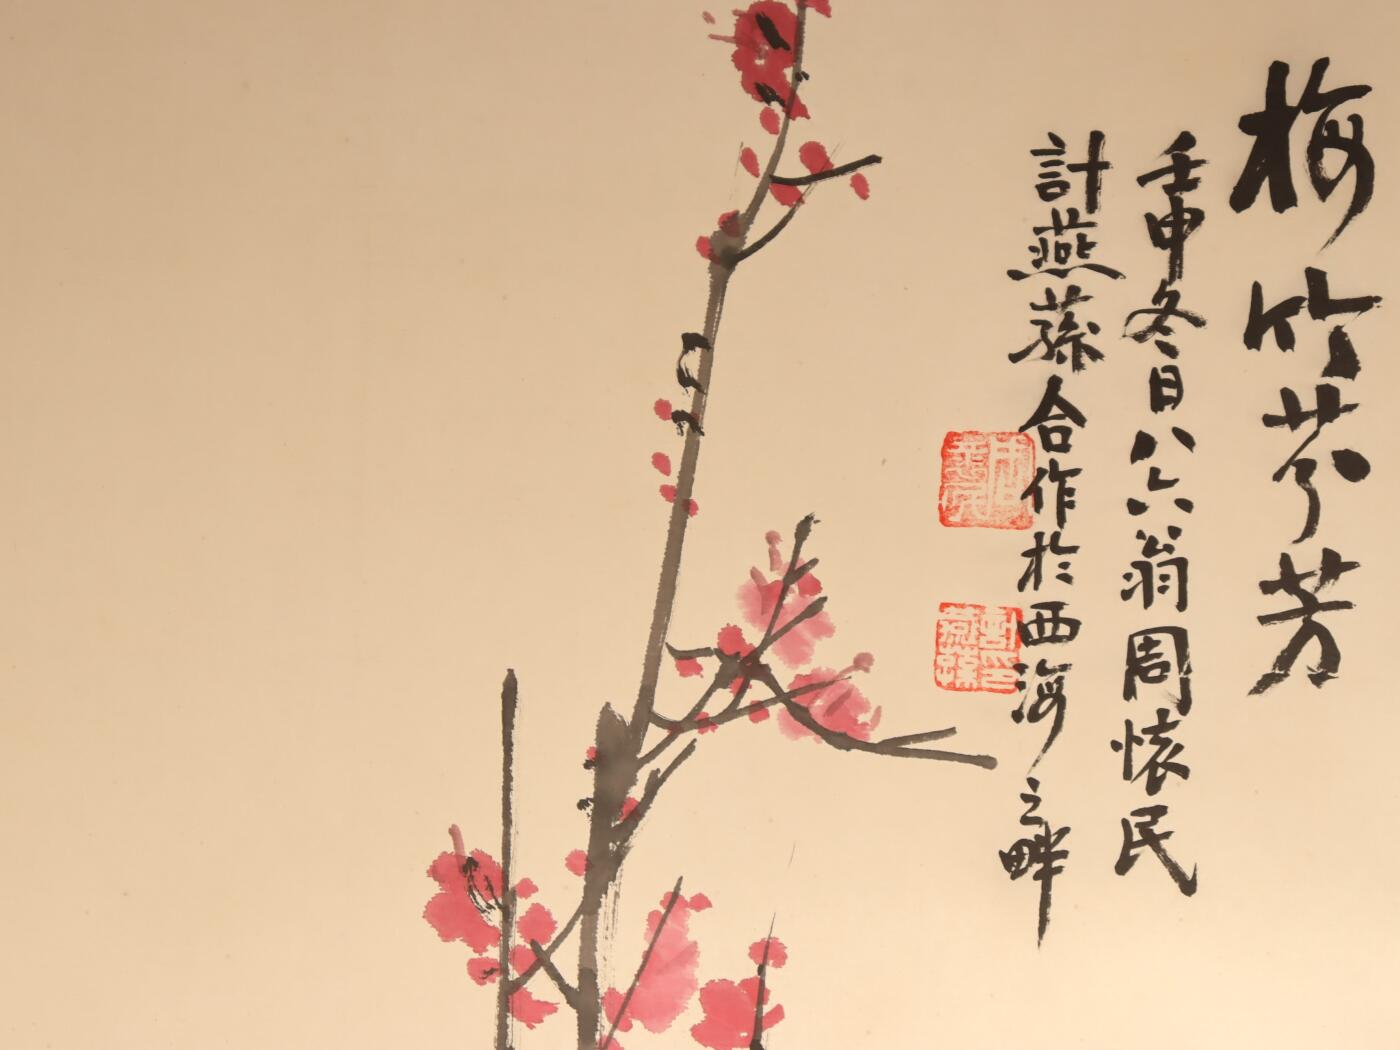 梅竹芬芳
壬申冬日八六翁周懐民
計燕蓀合作於西海之畔